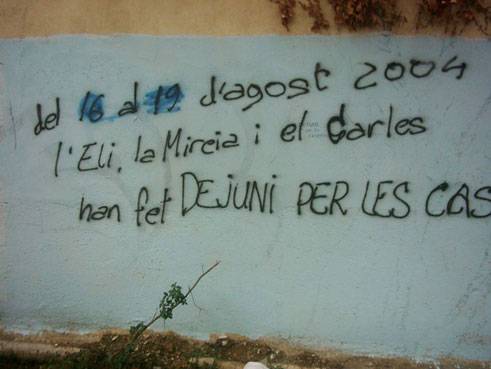 del 16 al 19 d'agost 2004
l'Eli, la Mircia i el Carles
han fet DEJUNI PER LES CAS